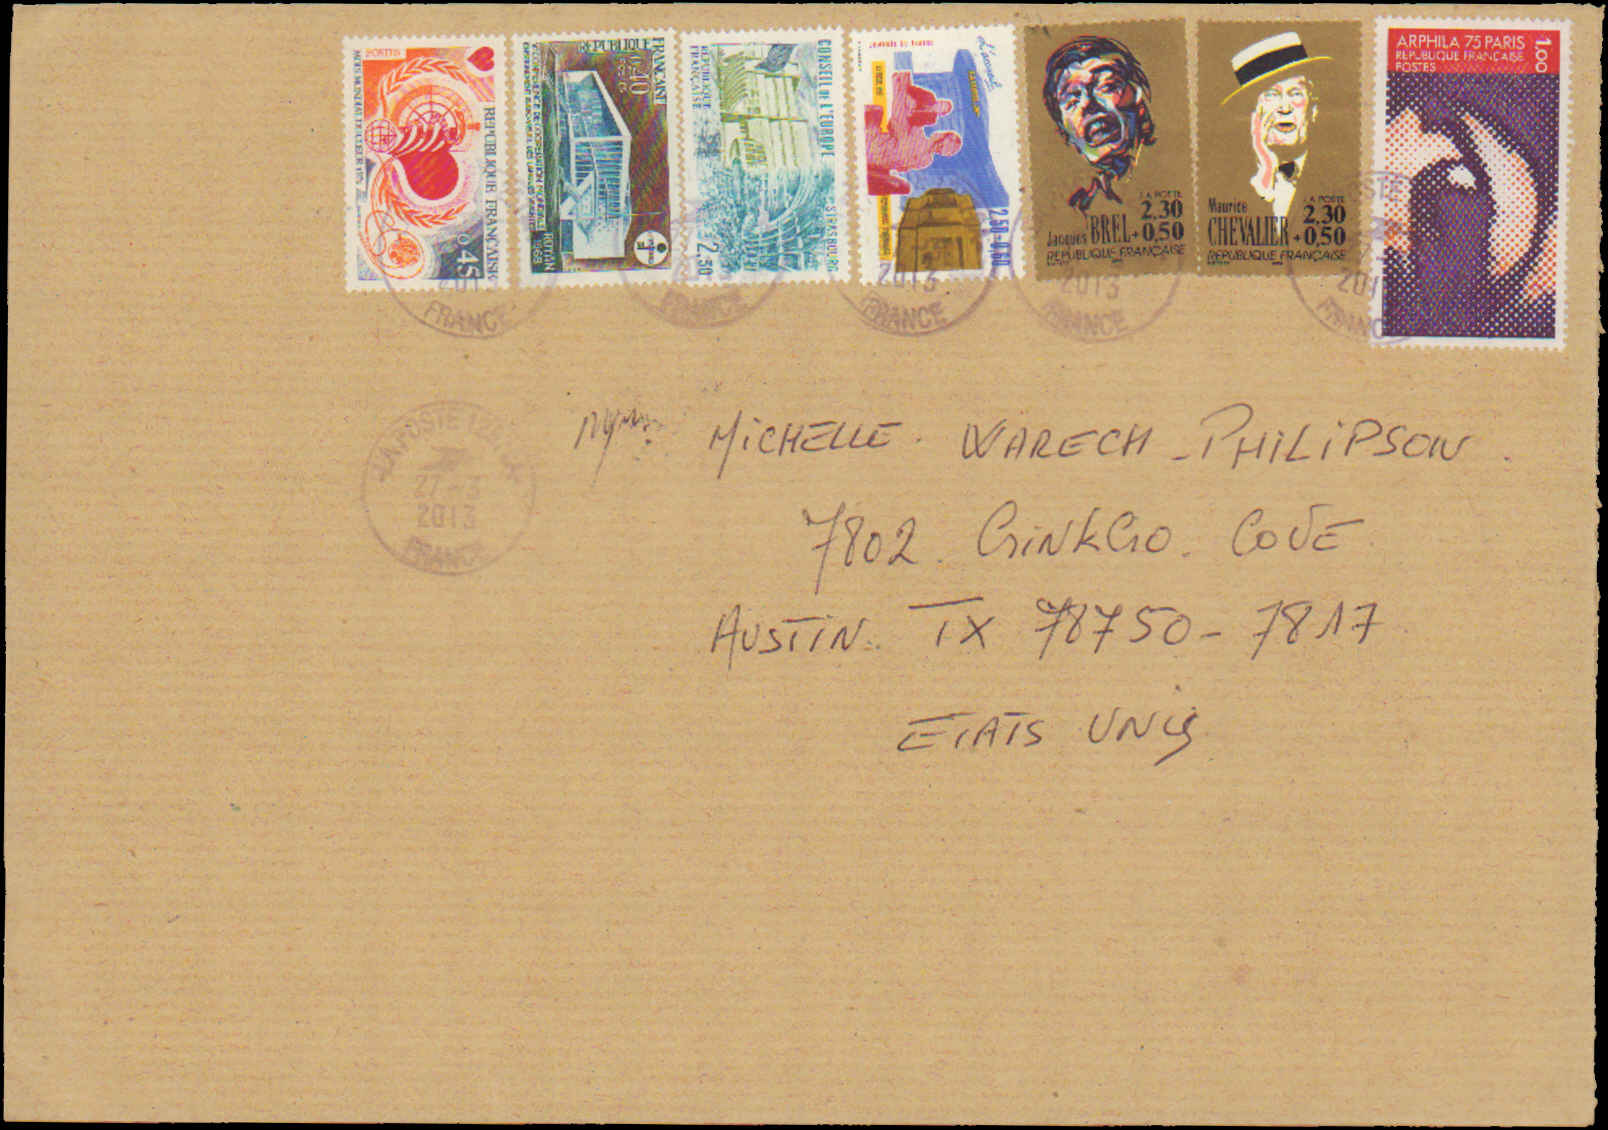 POSTES
MOIS MONDIAL DU COEUR 1972
REPUBLIQUE FRANÇAISE
0,45
REPUBLIQUE FRANÇAISE
0,40
ROYAN 1968
CONSEIL DE L'EUROPE
STRASBOURG
REPUBLIQUE FRANÇAISE
2,50
Journée du Timbre
2,50+0,60
LA POSTE
2.30
+0,50
Jacques BREL
REPUBLIQUE FRANÇAISE
LA POSTE
2.30
+0,50
Maurice CHEVALIER
REPUBLIQUE FRANÇAISE
ARPHILA 75 PARIS
REPUBLIQUE FRANÇAISE
POSTES
1,00
FRANCE
FRANCE
2013
FRANCE
2013
FRANCE
201
FRANC
LA POSTE
27-3
2013
FRANCE
MICHELLE WARECH-PHILIPSON
7802 GINKGO COVE
AUSTIN TX 78750-7817
ETATS UNIS